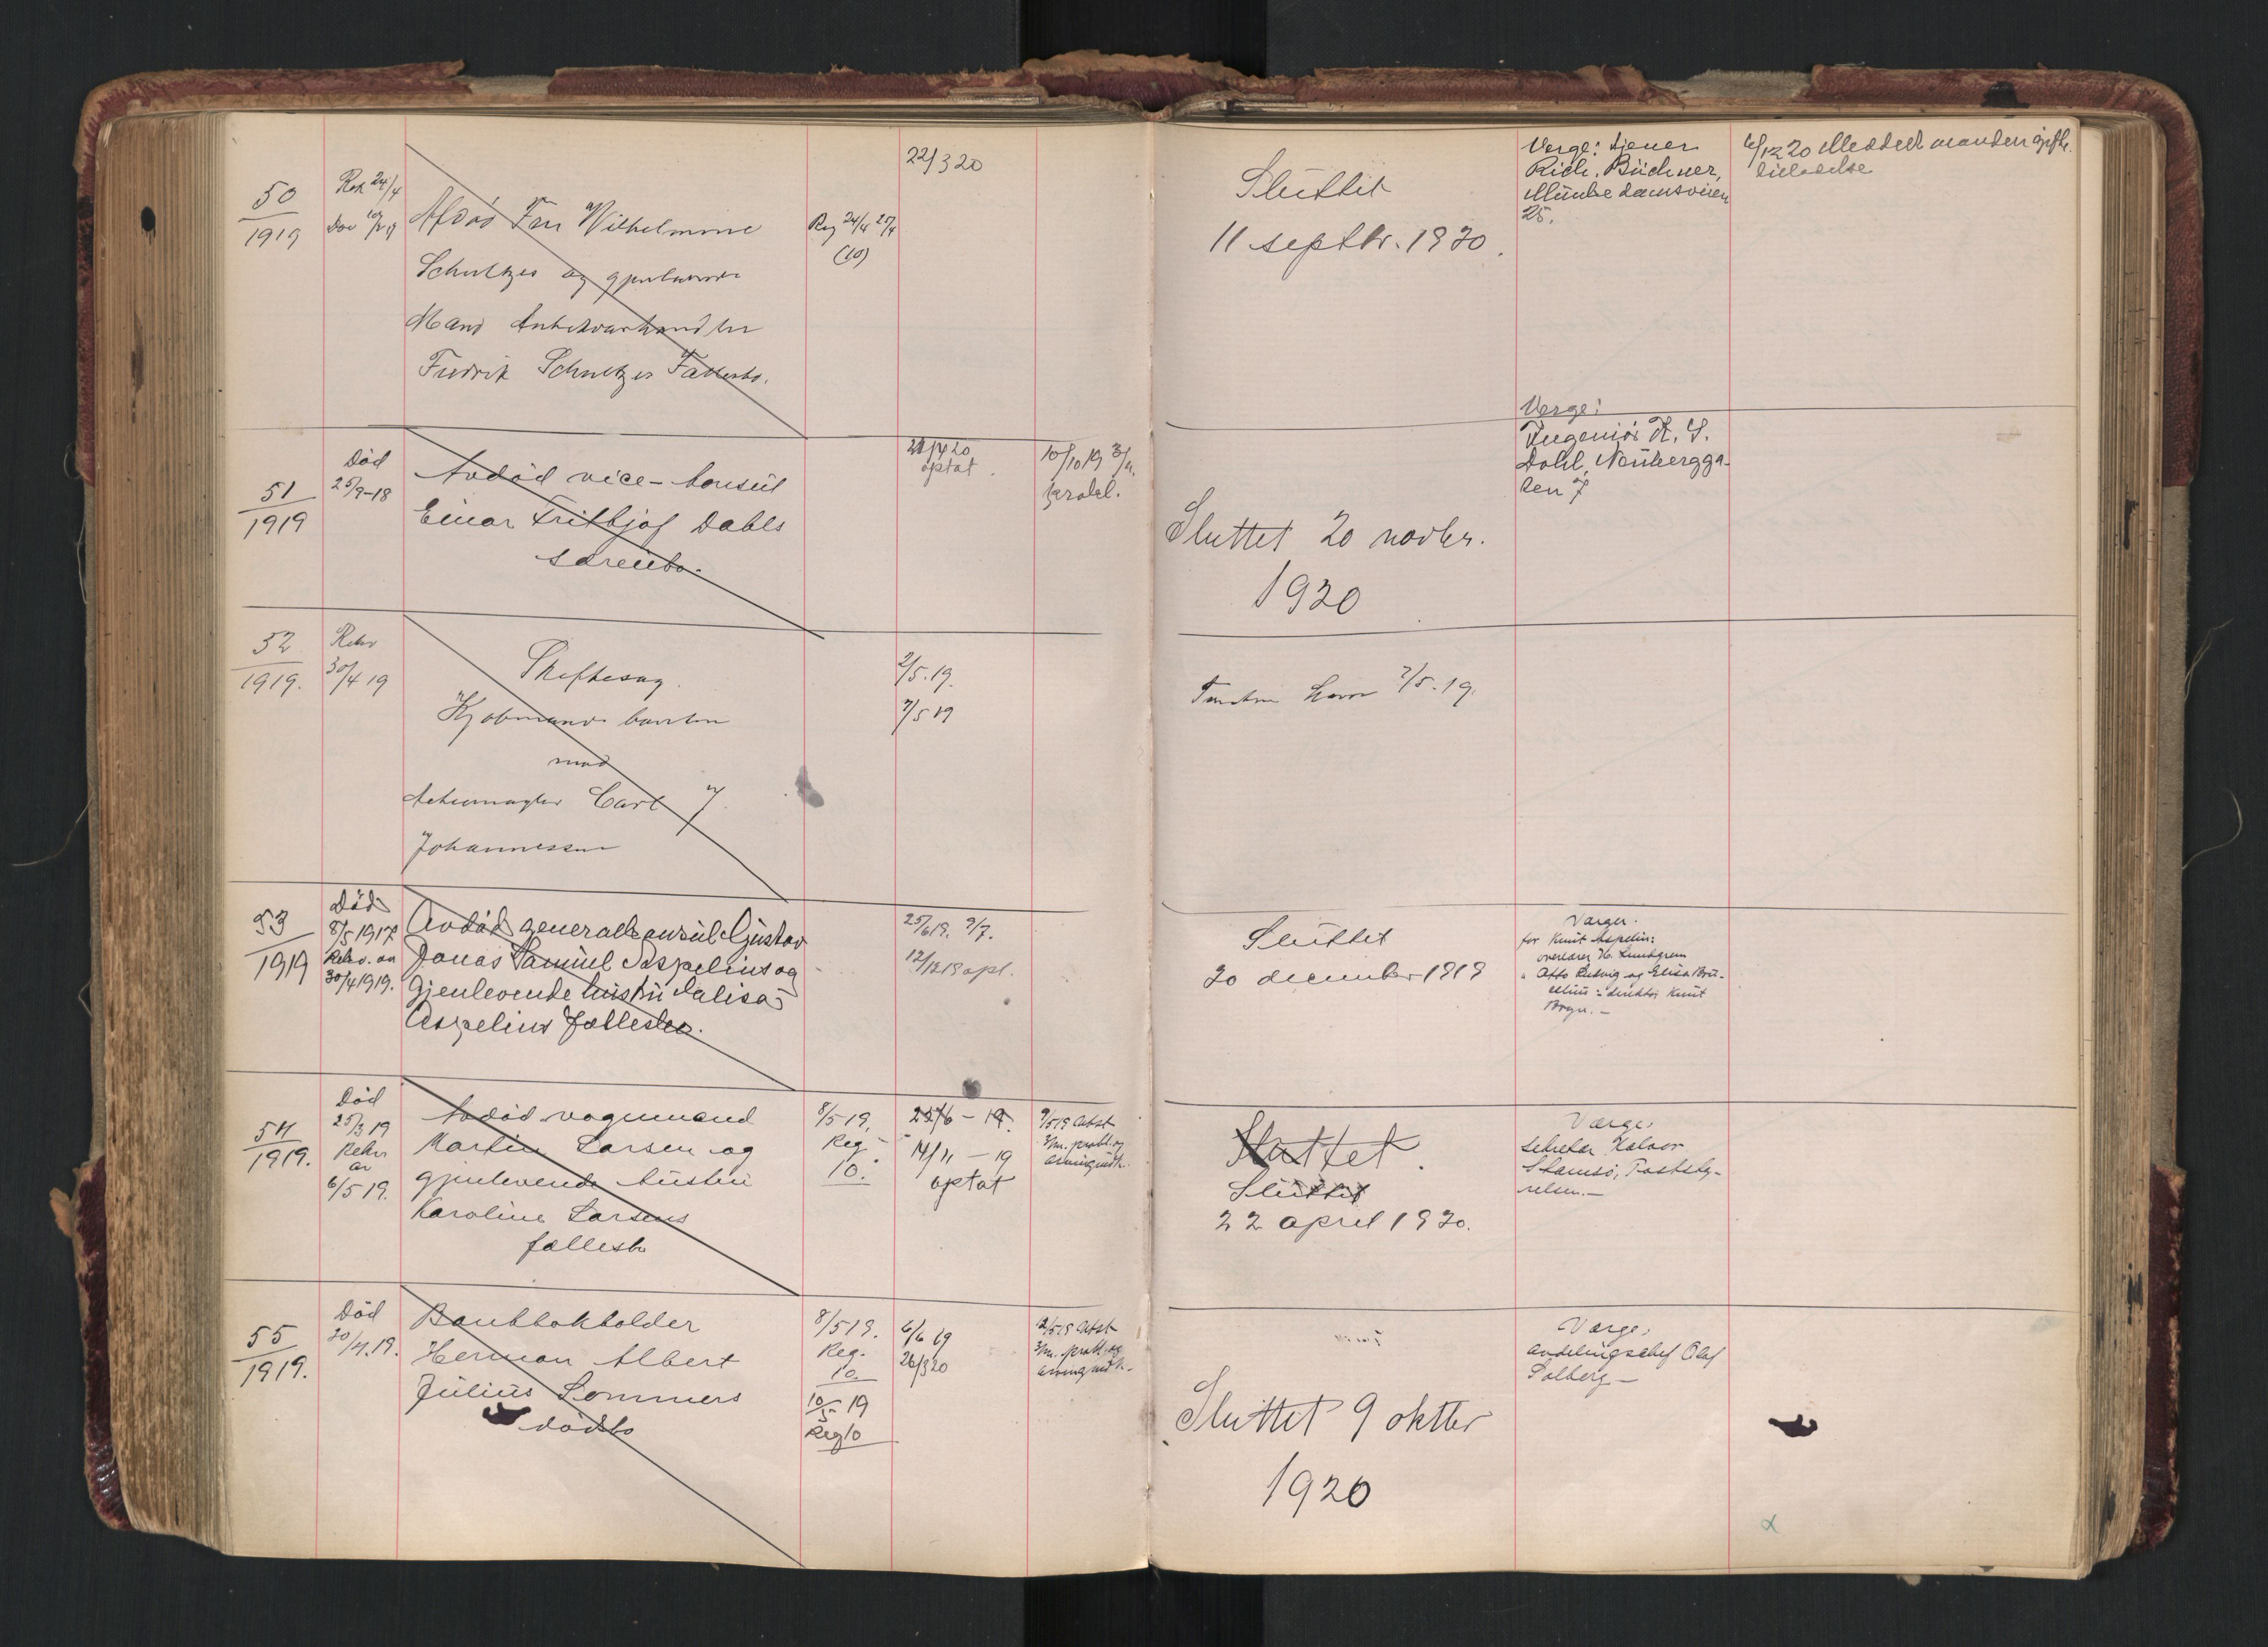 50
1919
Rek 24/4
Død 10/2 19
Afdød Fru Wilhelmine
Schultzes og gjenlevende
Mand Antikvarhandler
Fredrik Schultzes Fællesbo.
Reg 24/4 25/4
(10)
22/3 20
Sluttet
11 septbr. 1920.
Verge: tjener
Rich. Büchner,
Munkedamsveien
25.
6/12 20 Meddelt manden
tilladelse
51
1919
Død
25/9-18
Avdød vice-konsul
Einar Frithjof Dahls
særeiebo.
20
optat.
10/10 19 3/m.
prokl.
Sluttet 20 novbr.
1920
Verge:
Ingeniør K. S.
Dahl, Neubergga-
ten 7
52
1919.
Rekv
30/4 19
Skiftesag.
mod
Carl J.
Johannessen
2/5.19.
7/5 19
7/5.19.
53
1919
Død
8/5 1917
Rekv. av
30/4 1919.
Avdød generalkonsul Gustav
Jonas Samuel Aspelins og
gjenlevende hustru Malisa
Aspelins fællesbo.
25/6 19. 9/7.
12/12 19 opt.
Sluttet
20 december 1919
Verger.
for Knut Aspelin:
overlærer H. Lundgren
" Otto Ludvig og Elisa
: direktør Knut
Bryn.-
54
1919.
Død
25/3 19
Rekv
av
6/5 19.
Avdød vognmand
Martin Larsen og
gjenlevende hustru
Karoline Larsens
fællesbo
8/5 19.
Reg
10.
25/6 - 19.
14/11 - 19
optat
9/5 19 Utst
3/m. prokl. og
Sluttet.
Sluttet
22 april 1920.
Verge:
sekretær Halvor
Stamsø, Poststy-
relsen.-
55
1919.
Død
20/4.19.
Bankbokholder
Herman Albert
Julius Sommers
dødsbo
8/5 19.
Reg.
10.
10/5 - 19
Reg 10
6/6 19
26/3 20
12/5 19 Utst
3/m. prokl. og
Sluttet 9 oktbr
1920
Verge:
avdelingschef Olaf
Solberg-